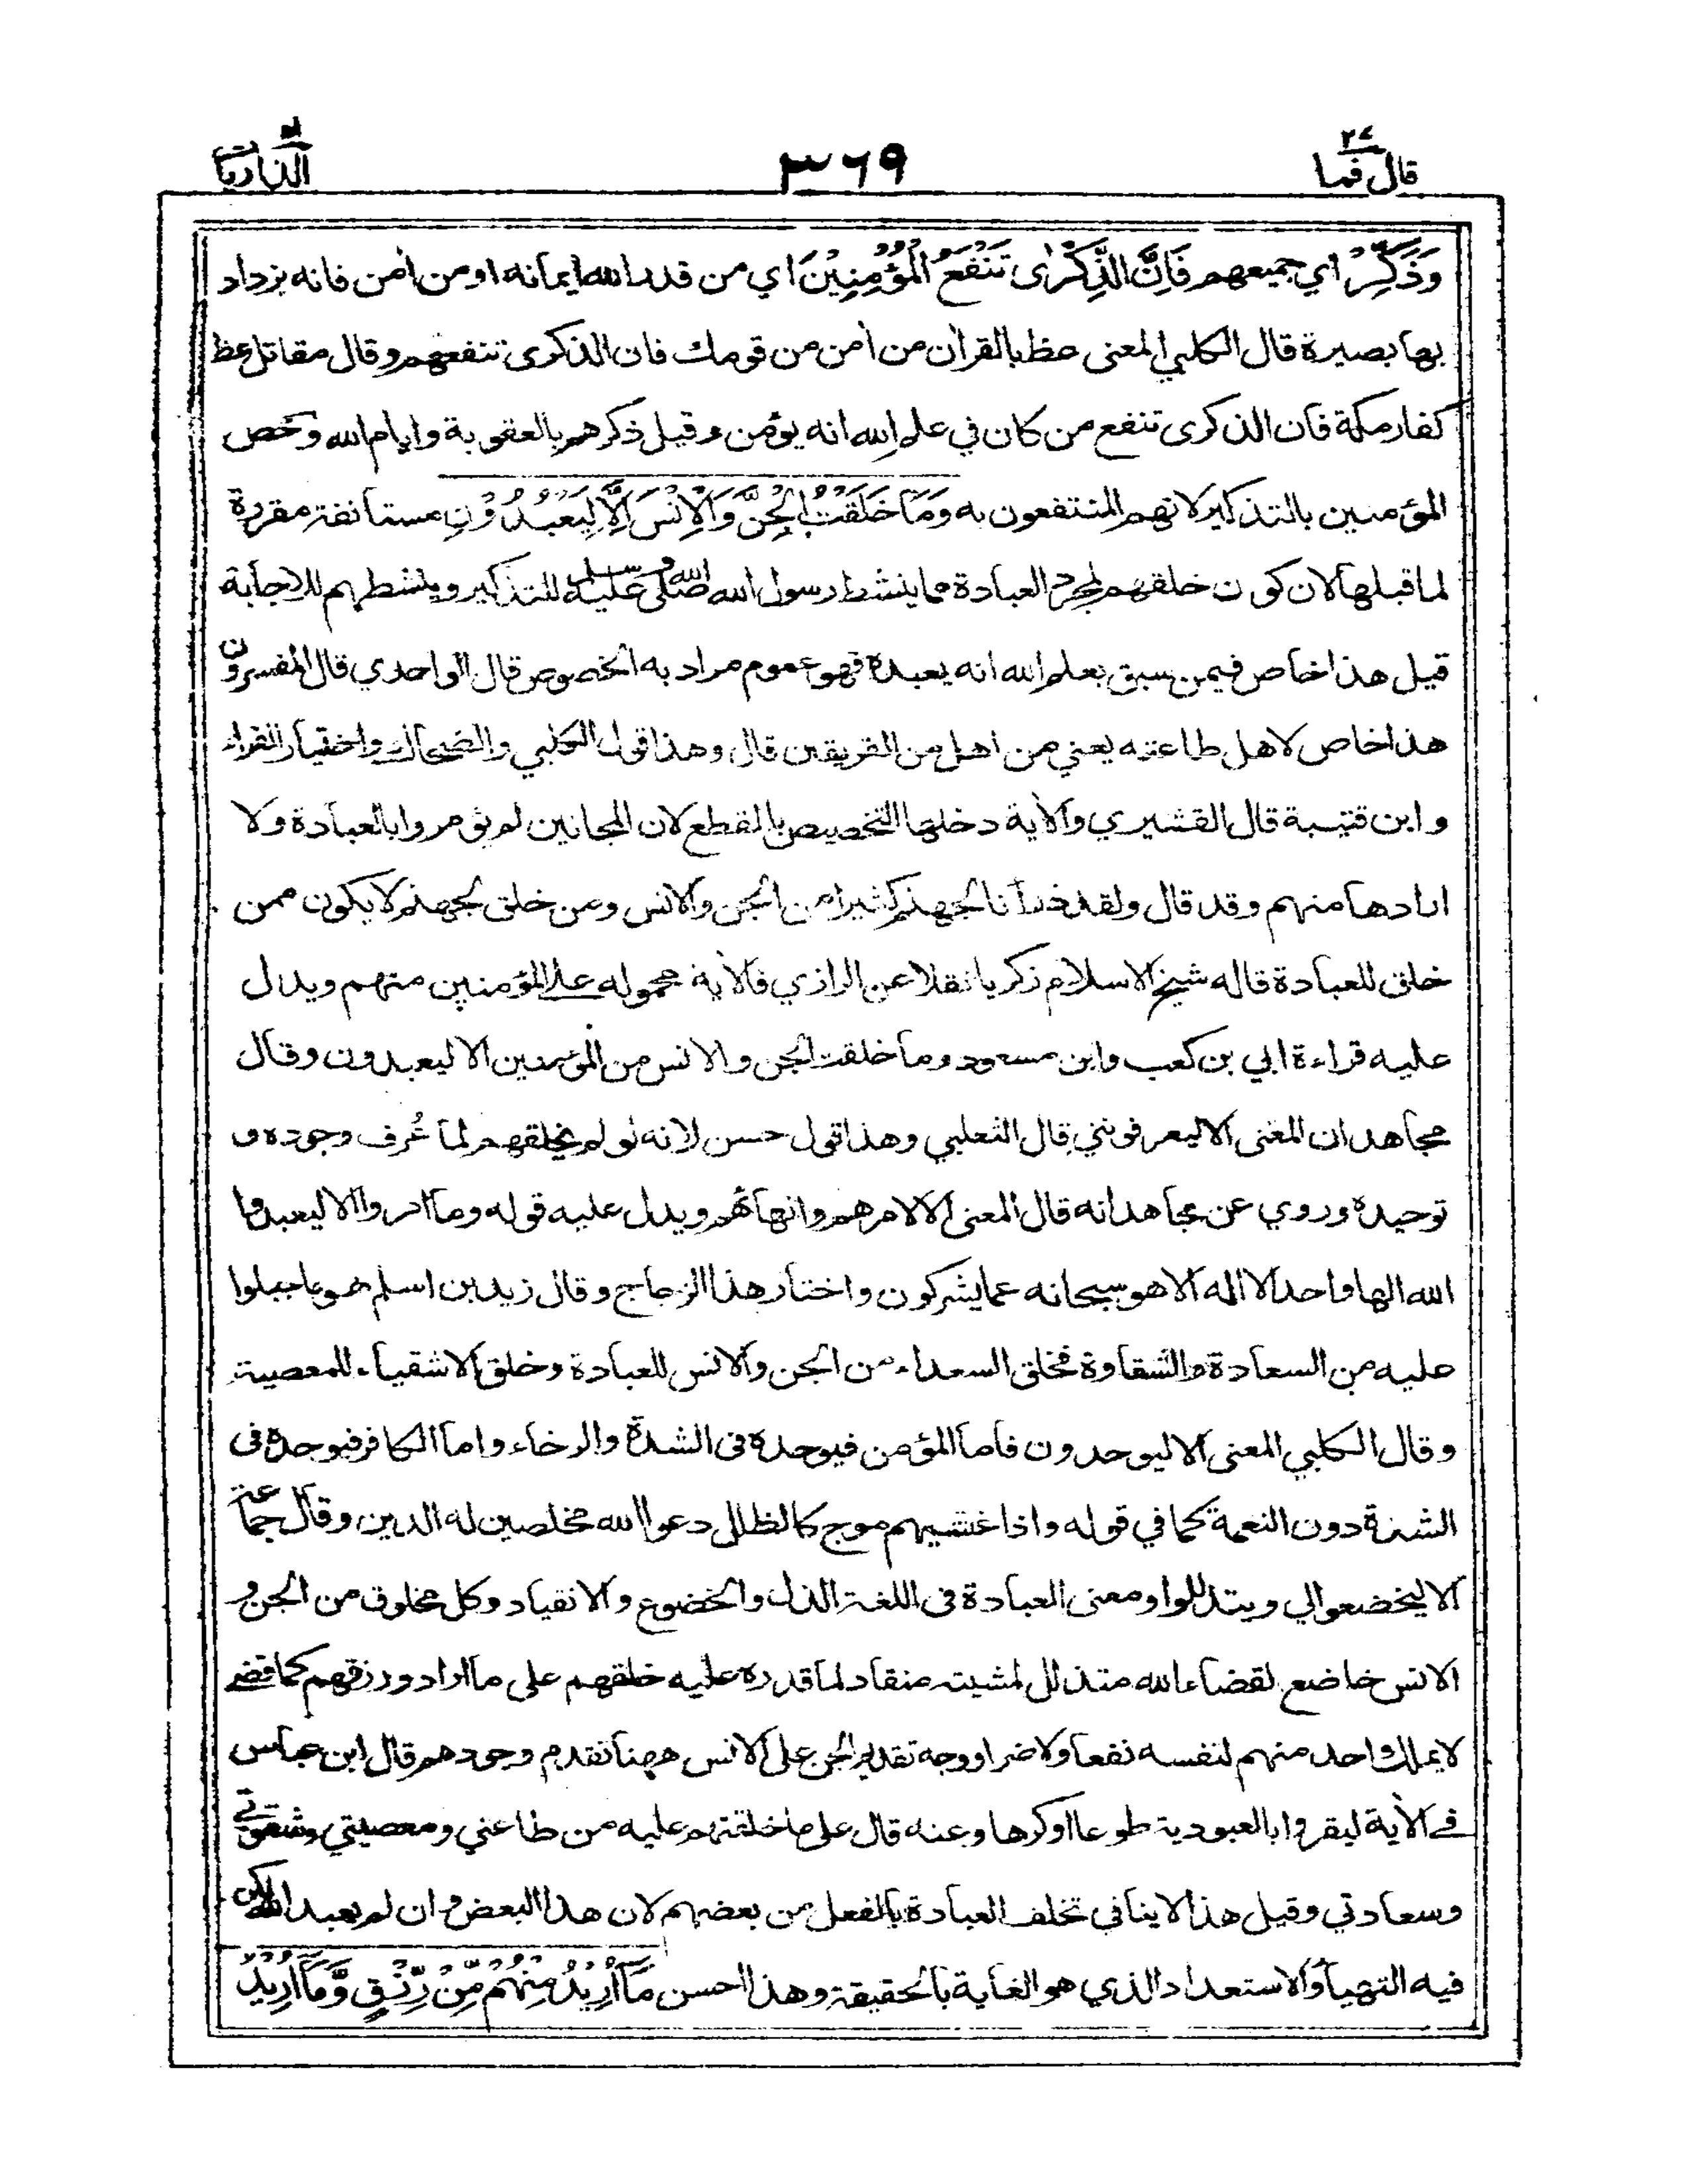 قال فما ٢٧
٣٦٩
الذاريات
وَذَكِّرْ اي جميعهم فَاِنَّ الذِّكْرٰى تَنْفَعُ الْمُؤْمِنِيْنَ اي من قدر الله ايمانه او من اٰمن فانه يزداد
بها بصيرة قال الكلبي المعنى عظ بالقراٰن من اٰمن من قومك فان الذكرى تنفعهم وقال مقاتل عظ
كفار مكة فان الذكرى تنفع من كان في علم الله انه يؤمن وقيل ذكرهم بالعقوبة وايام الله وخص
المؤمنين بالتذكير لانهم المنتفعون به وَمَا خَلَقْتُ الْجِنَّ وَالْاِنْسَ اِلَّا لِيَعْبُدُوْنِ مستأنفة مقررة
لما قبلها لان كون خلقهم لمجرد العبادة مما ينشط رسول الله صلى الله عليه وسلم للتذكير وينشطهم للاجابة
قيل هذا خاص فيمن سبق بعلم الله انه يعبده فهو عموم مراد به الخصوص قال الواحدي قال المفسرون
هذا خاص لاهل طاعته يعني من اهل من الفريقين قال وهذا قول الكلبي والضحاك واختيار الفراء
وابن قتيبة قال القشيري والاٰية دخلها التخصيص بالقطع لان المجانين لم يؤمروا بالعبادة ولا
ارادها منهم وقد قال ولقد ذرأنا لجهنم كثيرا من الجن والانس ومن خلق لجهنم لا يكون ممن
خلق للعبادة قاله شيخ الاسلام زكريا نقلا عن الرازي فالاٰية محمولة على المؤمنين منهم ويدل
عليه قراءة ابي بن كعب وابن مسعود وما خلقت الجن والانس من المؤمنين الا ليعبدون وقال
مجاهد ان المعنى الا ليعرفوني قال الثعلبي وهذا قول حسن لانه لو لم يخلقهم لما عُرف وجوده و
توحيده وروي عن مجاهد انه قال المعنى الا لامرهم وانهاهم ويدل عليه قوله وما امروا الا ليعبدوا
الله الها واحدا لا اله الا هو سبحانه عما يشركون واختار هذا الزجاج وقال زيد بن اسلم هو ما جبلوا
عليه من السعادة والشقاوة فخلق السعداء من الجن والانس للعبادة وخلق الاشقياء للمعصية
وقال الكلبي المعنى الا ليوحدون فاما المؤمن فيوحده فى الشدة والرخاء واما الكافر فيوحده فى
الشدة دون النعمة كما في قوله واذا غشيهم موج كالظلل دعوا الله مخلصين له الدين وقال جماعة
الا ليخضعوا لي ويتذللوا ومعنى العبادة فى اللغة الذل والخضوع والانقياد وكل مخلوق من الجن و
الانس خاضع لقضاء الله متذلل لمشيته منقاد لما قدره عليه خلقهم على ما اراد ورزقهم كما قضى
لا يملك واحد منهم لنفسه نفعا ولا ضرا ووجه تقديم الجن على الانس ههنا تقدم وجودهم قال ابن عباس
في الاٰية ليقروا بالعبودية طوعا او كرها وعنه قال على ما خلقتهم عليه من طاعتي ومعصيتي وشقوتي
وسعادتي وقيل هذا لا ينافي تخلف العبادة بالفعل من بعضهم لان هذا البعض وان لم يعبد الله لكن
فيه التهيأ والاستعداد الذي هو الغاية بالحقيقة وهذا احسن مَآ اُرِيْدُ مِنْهُمْ مِّنْ رِّزْقٍ وَّمَآ اُرِيْدُ